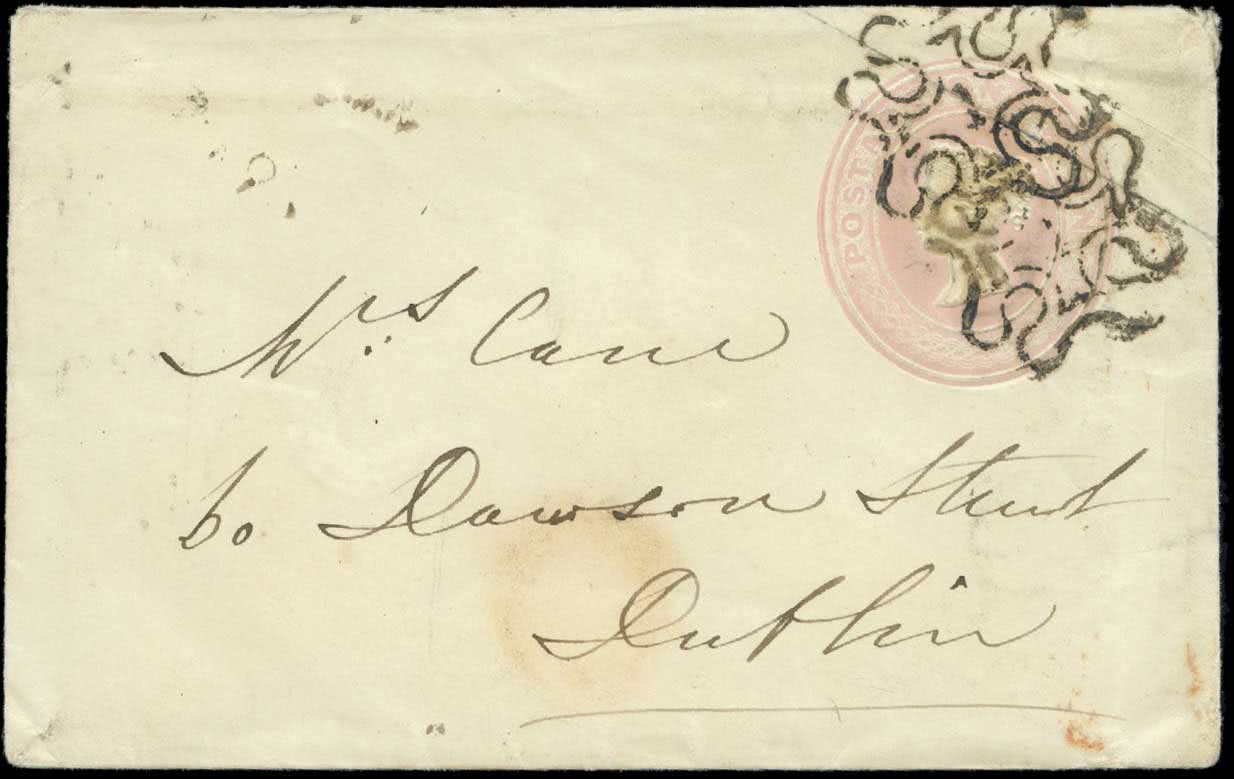 POSTA
Mrs. Cane
60 Dawson Street
Dublin